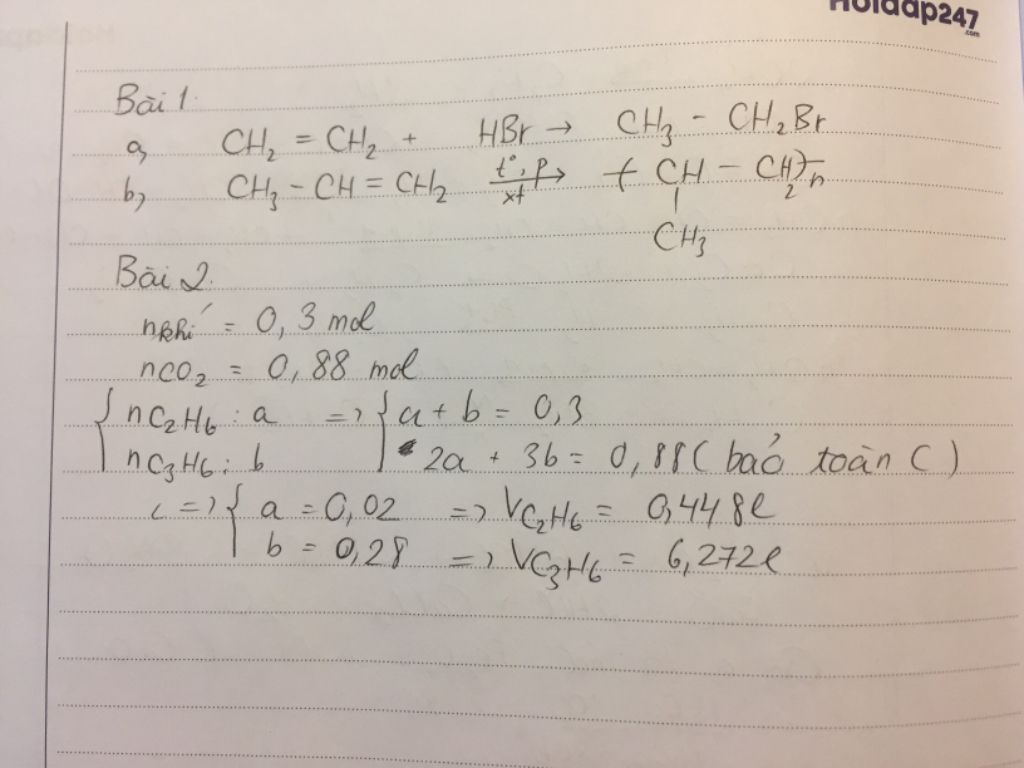 Hoidap247
.com
Bài 1:
a, CH₂ = CH₂ + HBr → CH₃ - CH₂Br
b, CH₃ - CH = CH₂ t°, p → (CH - CH₂)n
xt
CH₃
Bài 2.
nkhí = 0,3 mol
nCO₂ = 0,88 mol
{ nC₂H₆ : a => { a + b = 0,3
nC₃H₆ : b 2a + 3b = 0,88 ( bảo toàn C )
(=) { a = 0,02 => VC₂H₆ = 0,448l
b = 0,28 => VC₃H₆ = 6,272l